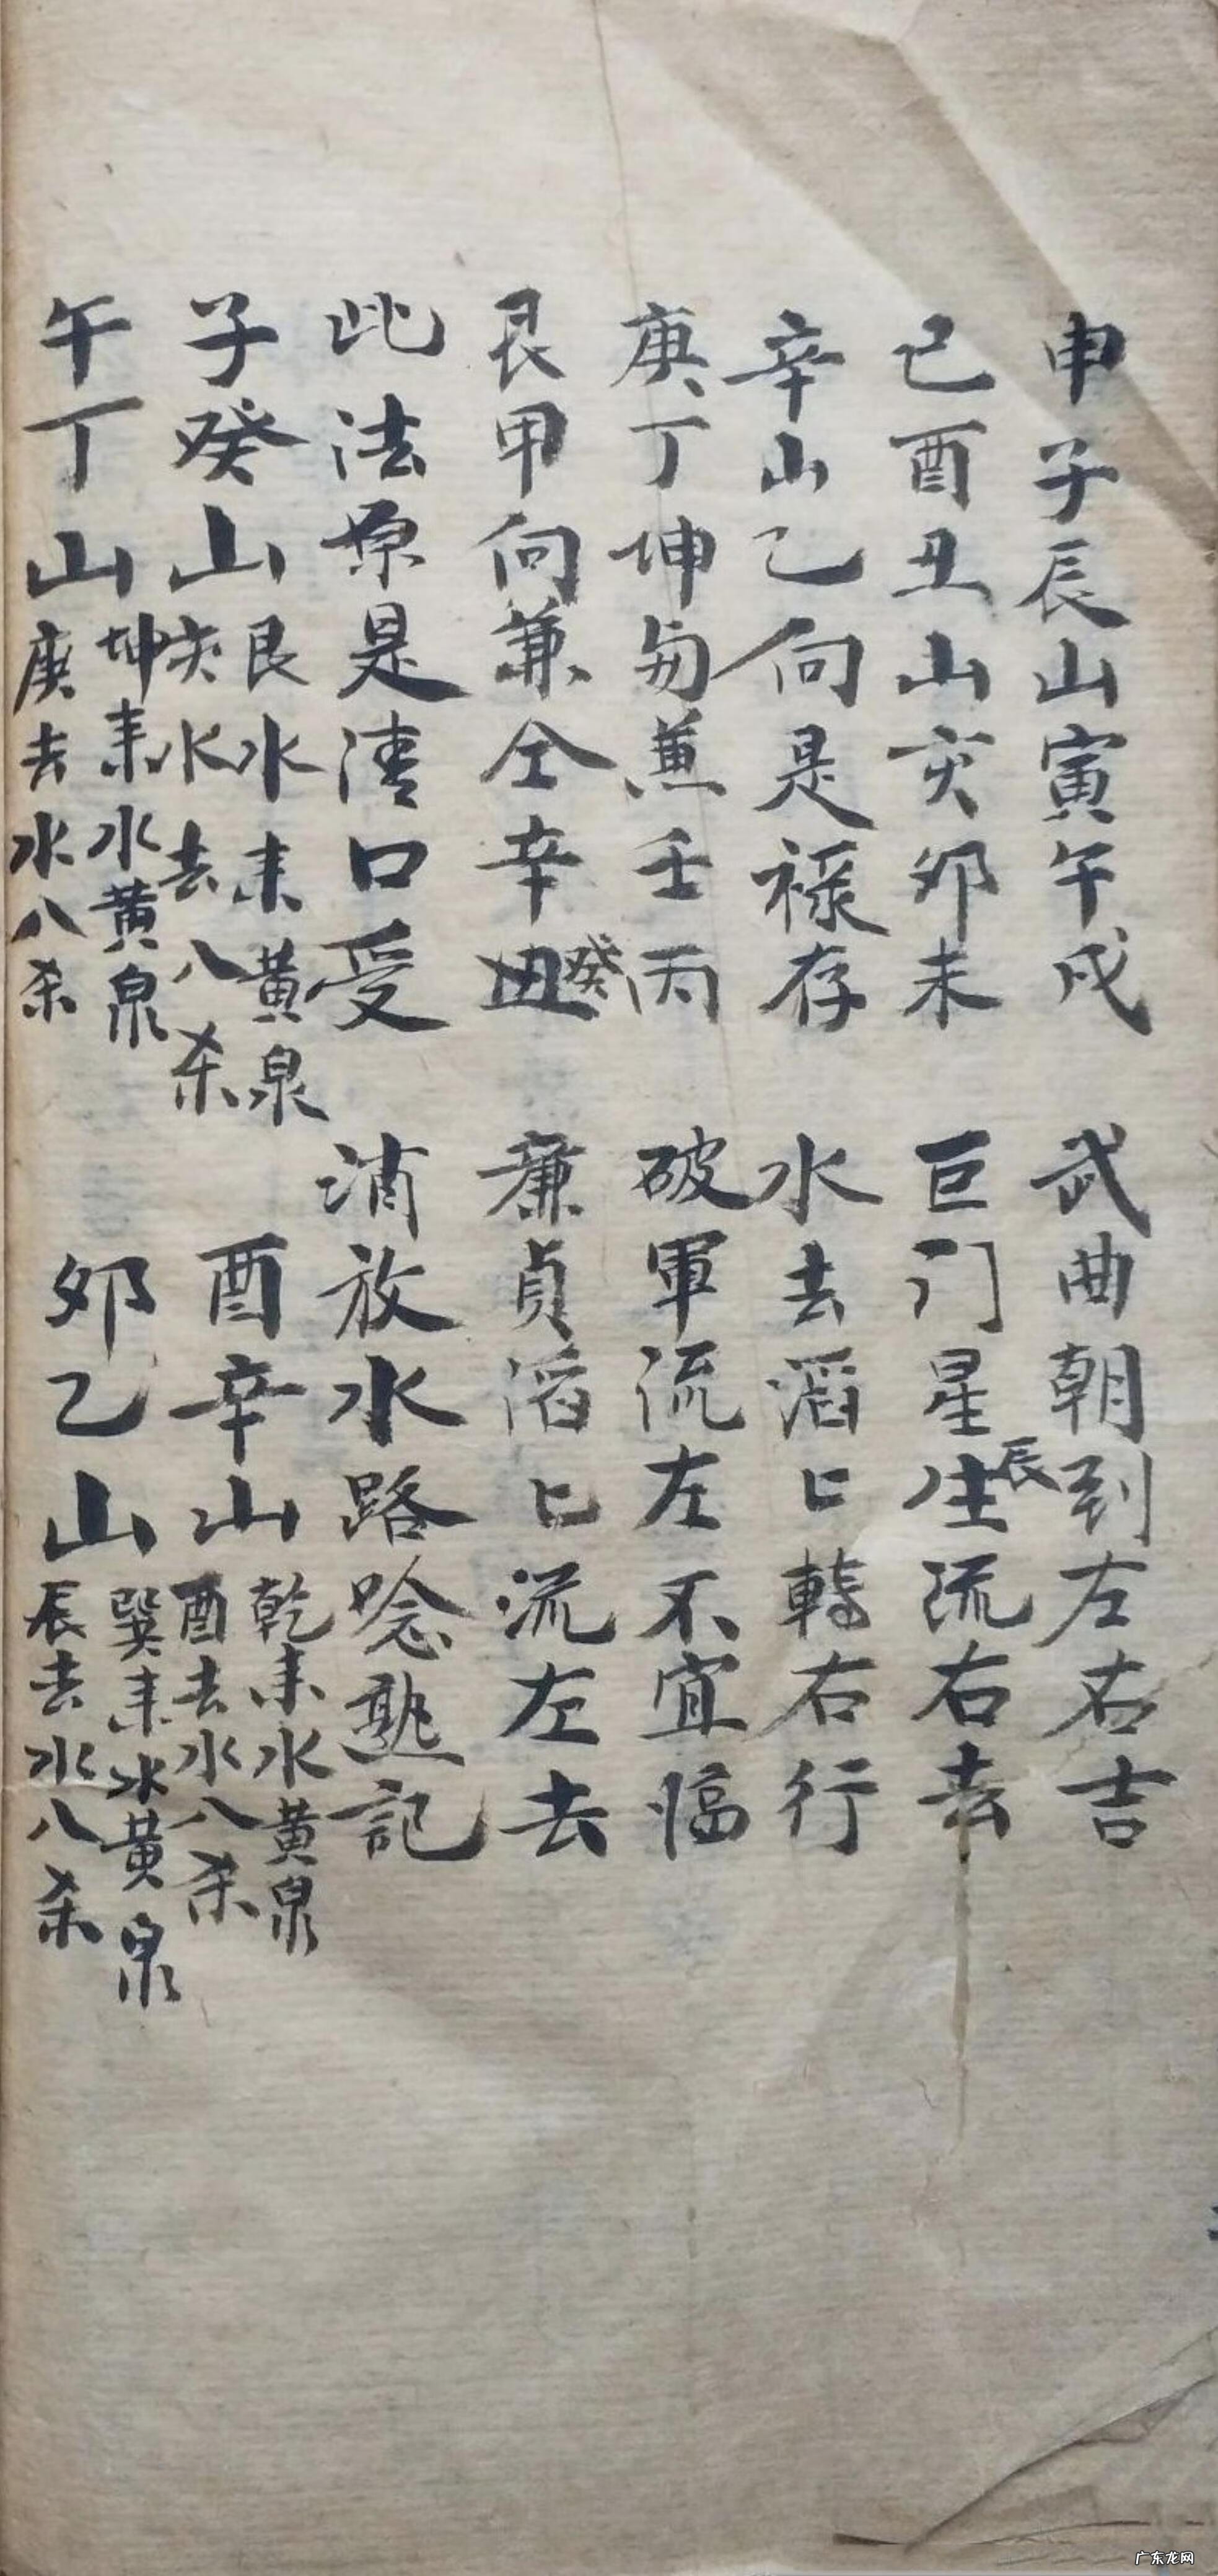 申子辰山寅午戌 武曲朝到左右吉
巳酉丑山亥卯未 巨门星辰生流右去
辛山乙向是禄存 水去滔匕轉右行
庚丁坤 兼壬丙 破軍流左不宜臨
艮甲向兼仝辛癸 廉貞滔匕流左去
此法原是清口受 消放水路唸熟記
子癸山 艮水来黄泉 亥水去八杀 酉辛山 乾来水黄泉 酉去水八杀
午丁山 坤来水黄泉 庚去水八杀 卯乙山 巽来水黄泉 辰去水八杀
广东龙网